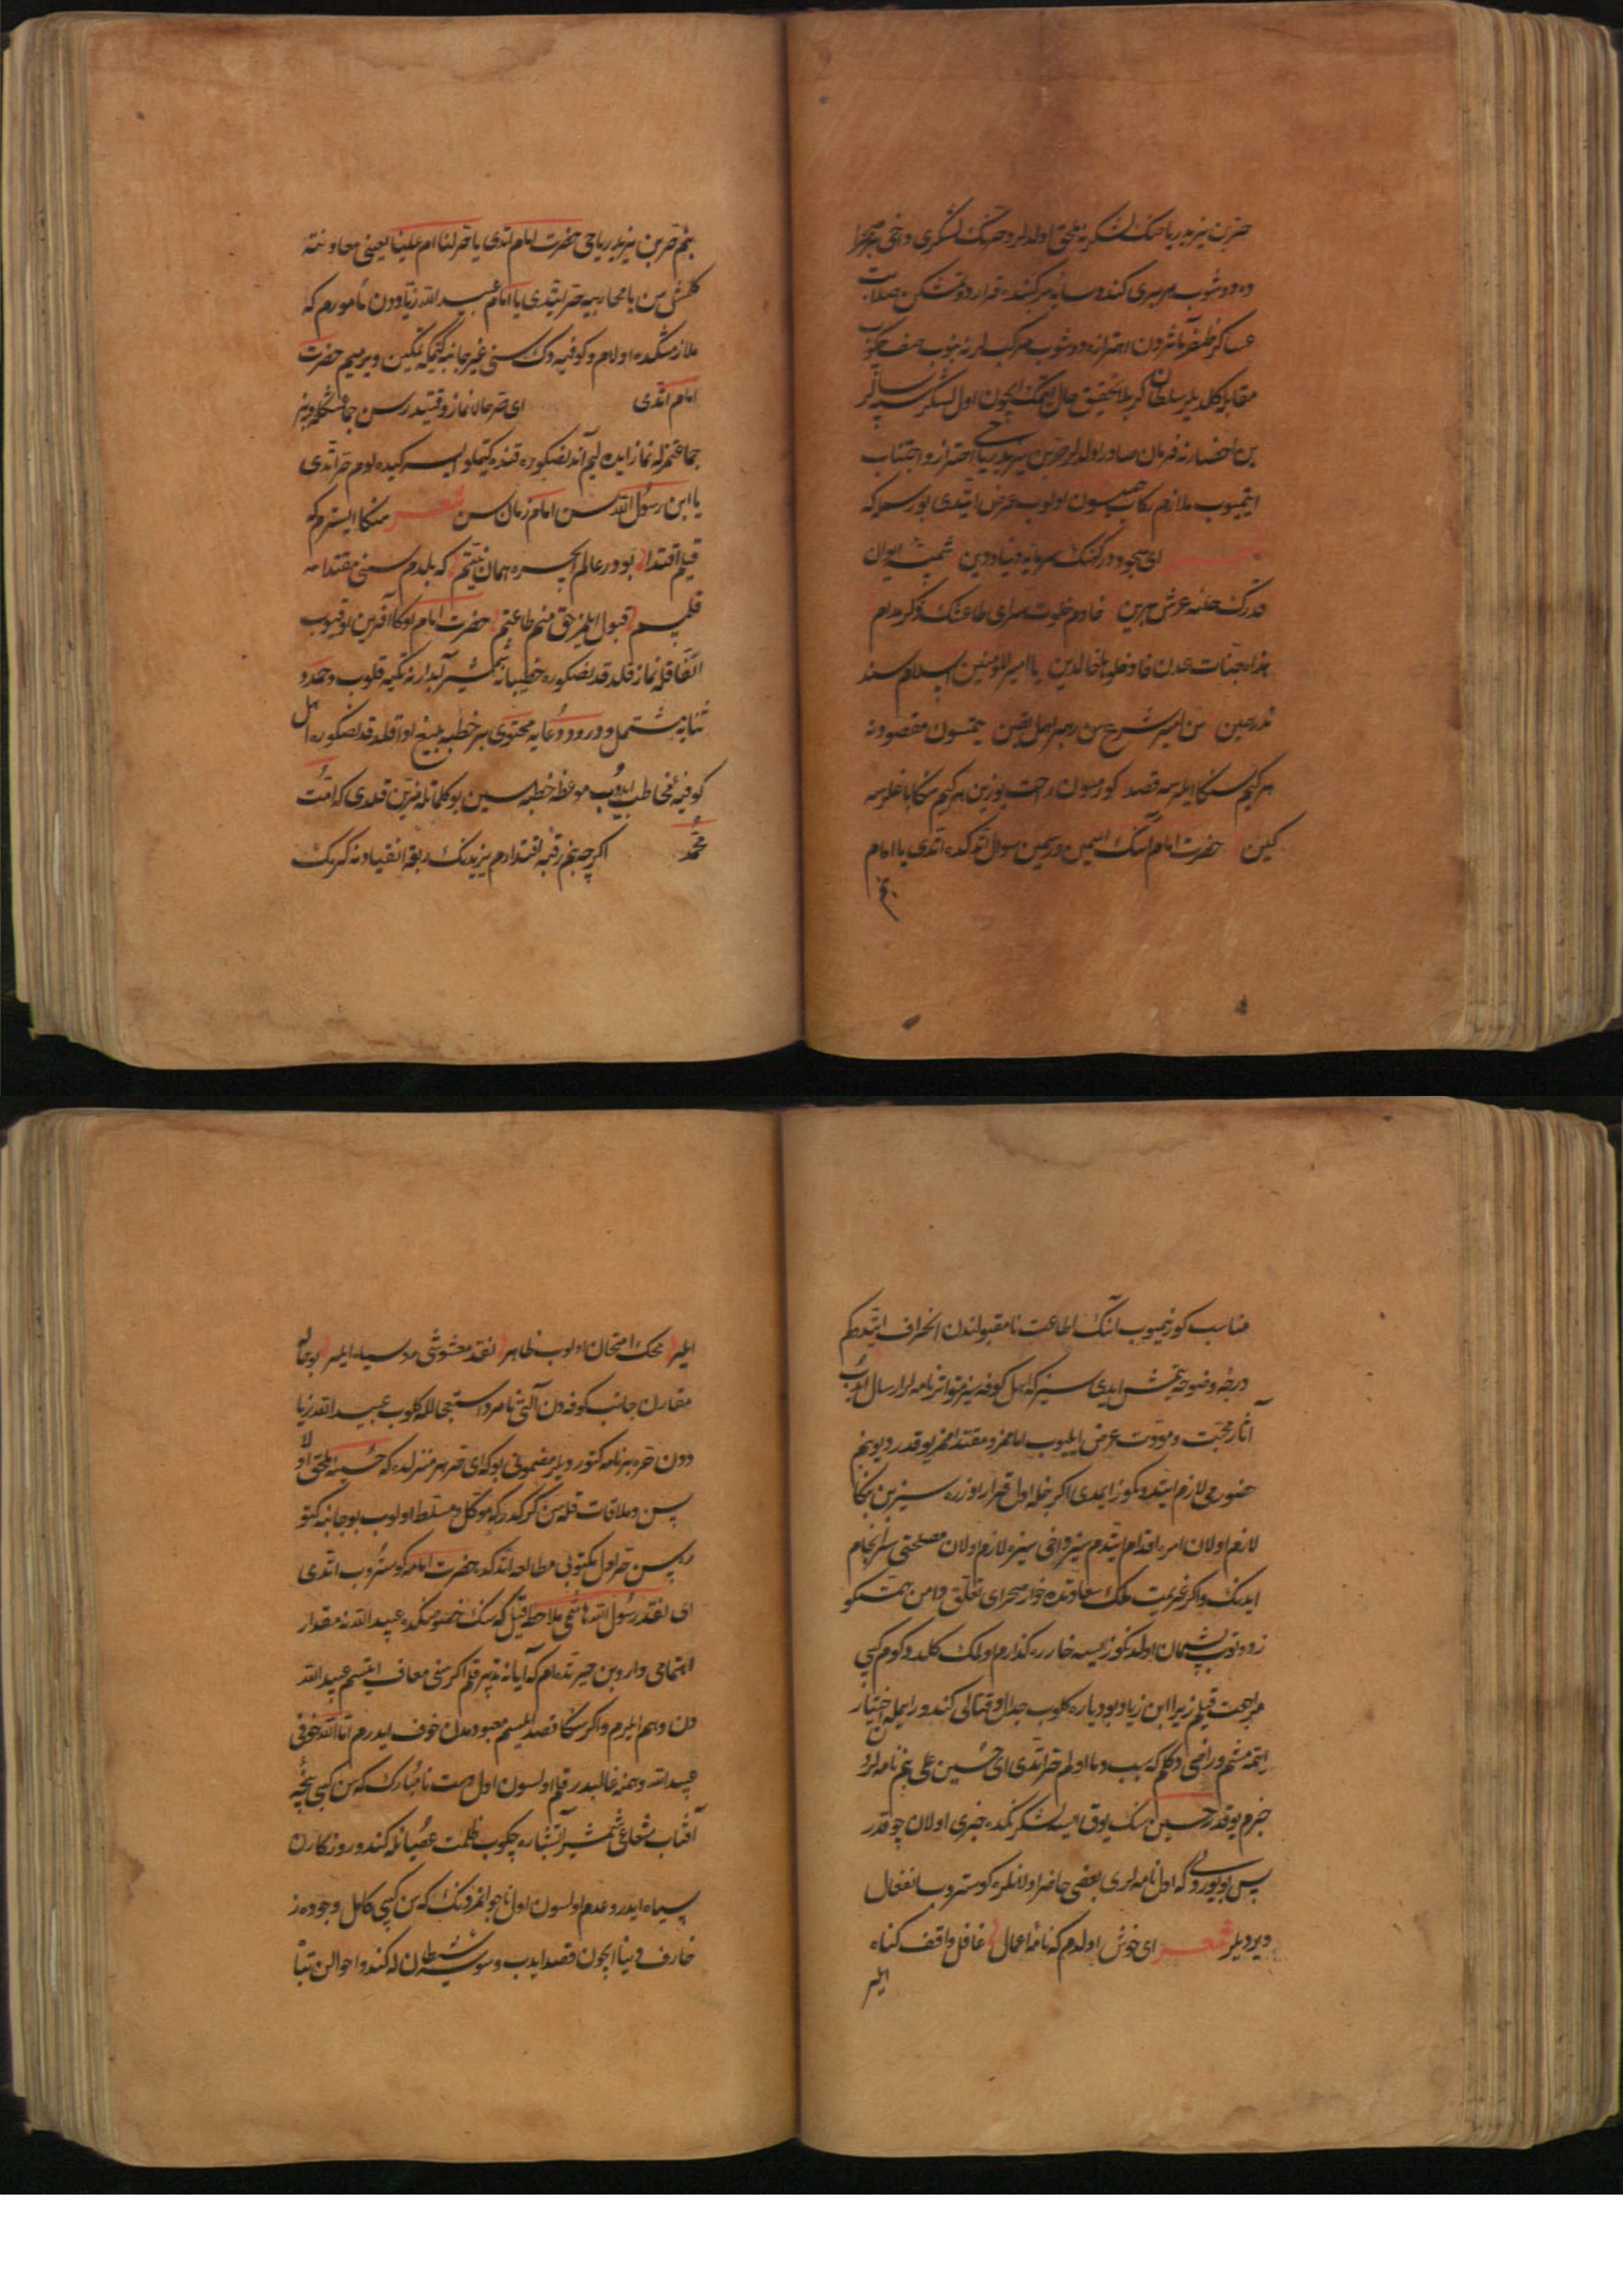 حر بن یزید ریاحینك لشكرینه ملحق اولدیلر و حرنك لشكری دخی بر صحرا
ده دوشوب هر بری كندو سایهٔ مركبنده قرار دوتمشكن صلابت
عساكر ظفر مآثردن اهتزازه دوشوب مركبلرنه بنوب صف چكوب
مقابله كلدیلر سلطان كربلا تحقیق حال ایتمك ایچون اول لشكر سپهسالار
ین احضارنه فرمان صادر اولدلر حر بن یزید ریاحی احتراز و اجتناب
ایتمیوب ملازم ركاب همیون اولوب عرض ایتدی بو رسمله كه
شعر ای سجود دركهك سرمایهٔ دنیا و دین شمسهٔ ایوان
قدرك حلقهٔ عرش برین خادم خلوت سرای طاعتك ذكر مدام
هذه جنات عدن فادخلوها خالدین یا امیر المؤمنین اسلام سند
ندر سن سن امیر شرع سن رهبر اهل یقین یتمسون مقصودنه
هر كیم سنكا ایلرسه قصد كورمسون راحت یوزین هر كیم سنكا باغلرسه
كین حضرت امام آنك اسمین و رسمین سوال اتدكده اتدی یا امام
بنم
بنم حر بن یزید ریاحی حضرت امام اتدی یا حر لنا ام علینا یعنی معاونته
كلمش سن یا محاربیه حر ایتدی یا امام عبید الله زیاددن مامورم كه
ملازمتكده اولام و كوفیه دك سنی غیر جانبه كتمكه تمكین ویرمیم حضرت
امام اتدی ای حر حالا نماز وقتیدر سن جماعتكله و بز
جماعتمزله نماز ایده لیم آندنصكره قنده كتملو ایسك كیده لوم حر اتدی
یا ابن رسول الله سن امام زمان سن شعر سنكا ایسترم كه
قیلم اقتدا بودر عالم ایچره همان نیتم كه بلدم سنی مقتدا
قلیسم قبول ایلمز حق منم طاعتم حضرت امام اوكا آفرین اوقیوب
اتفاقله نماز قلدقدنصكره خطیبانه شمشیر آبدارنه تكیه قلوب و حمد و
ثنایه مشتمل و درود و دعایه محتوی بر خطبهٔ بلیغ ادا قلدقدنصكره اهل
كوفیه مخاطب ایدوب موعظه خطبه سین بو كلماتله مزین قلدی كه امت
محمد اكرچه بنم رقبهٔ اقتدارم یزیدنك ربقهٔ انقیادنه كرمك
مناسب كورنمیوب آنك اطاعت نامقبولندن انحراف ایتدكم
درجهٔ وضوحه یتمش ایدی سیز كه اهل كوفه سیز متواتر نامه لر ارسال ایدوب
آثار محبت و مودت عرض ایلیوب امامز و مقتدامز یوقدر دیو بنم
حضورمی لازم ایتدوكوز ایمدی اكر ینه اول قرار اوزره سیز بن بنكا
لازم اولان امره اقدام ایتدم سیز داخی سیزه لازم اولان مصلحتی سرانجام
ایدنك و اكر عزیمت ملك سعادتده خار صحرای تعلق دامن همتكو
زه دوتوب پشیمان اولدكوز ایسه خار ره كذارم اولمك كلدوكوم كبی
مراجعت قیلم زیرا ابن زیاد بو دیاره كلوب جدال و قتالی كندو رایمله اختیار
ایتمه مشم و راضی دكلم كه سبب دما اولم حر اتدی ای حسین علی بنم نامه لردن
خبرم یوقدر حسین سنك یوق ایسه لشكرنكده خبری اولان چوقدر
پس بویوردی كه اول نامه لری بعضی حاضر اولانلره كوستروب انفعال
ویردیلر شعر ای خوش اولدم كه نامهٔ اعمال غافلی واقف كناه
ایلر
ایلر محك امتحان اولوب ظاهر نقد مغشوشی روسیاه ایلر بو حاله
مقارن جانب كوفه دن آلتی نامرد استعجالله كلوب عبید الله زیا
ددن حره بر نامه كتوردیلر مضمونی بو كه ای حر هر منزلده كه حسینه ملحق اولا
سن و ملاقات قله سن كركدر كه موكل و مسلط اولوب بو جانبه كتو
ره سن حر اول مكتوبی مطالعه اتدكده حضرت امامه كوستروب اتدی
ای نقد رسول الله هاشمی ملاحظه قیل كه سنك خصومتكده عبید الله نه مقدار
اهتمامی وار و بن حیرتده ام كه آیا نه تدبیر قلم اكر سنی معاف ایتسم عبید الله
دن وهم ایلرم و اكر سنكا قصد ایلیسم معبودمدن خوف ایدرم اما الله خوفی
عبید الله وهمنه غالبدر قلم اولسون اول دست نامبارك كه سن كبی پنجهٔ
آفتاب شعاعی شمشیر آتشباره چكوب ظلمت عصیانله كندو روزكارن
سیاه ایدر و عدم اولسون اول ناجوانمردنك كه سن كبی كامل وجوده ز
خارف دنیا ایچون قصد ایدب وسوسهٔ شیطان له كندو احوالن تبا